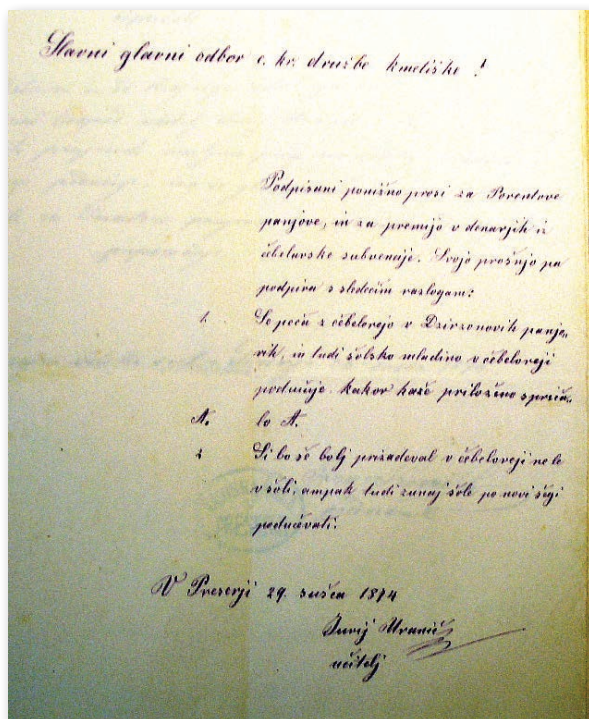 Slavni glavni odbor c. kr. družbe kmetiške!
Podpisani ponižno prosi za Porentove
panjove, in za premijo v denarjih iz
čebelarske subvencije. Svojo prošnjo pa
podpira s sledečim razlogam:
1. Se peča z čebelorejo v Dzirzonovih panjo„
vih, in tudi šolsko mladino v čebeloreji
podučuje kakor kaže priloženo spriča„
A. lo A.
2 Si bo še bolj prizadeval v čebeloreji ne le
v šoli, ampak tudi zunaj šole po novi šegi
podučevati.
V Preserji 29. sušca 1874
Jurij
učitelj